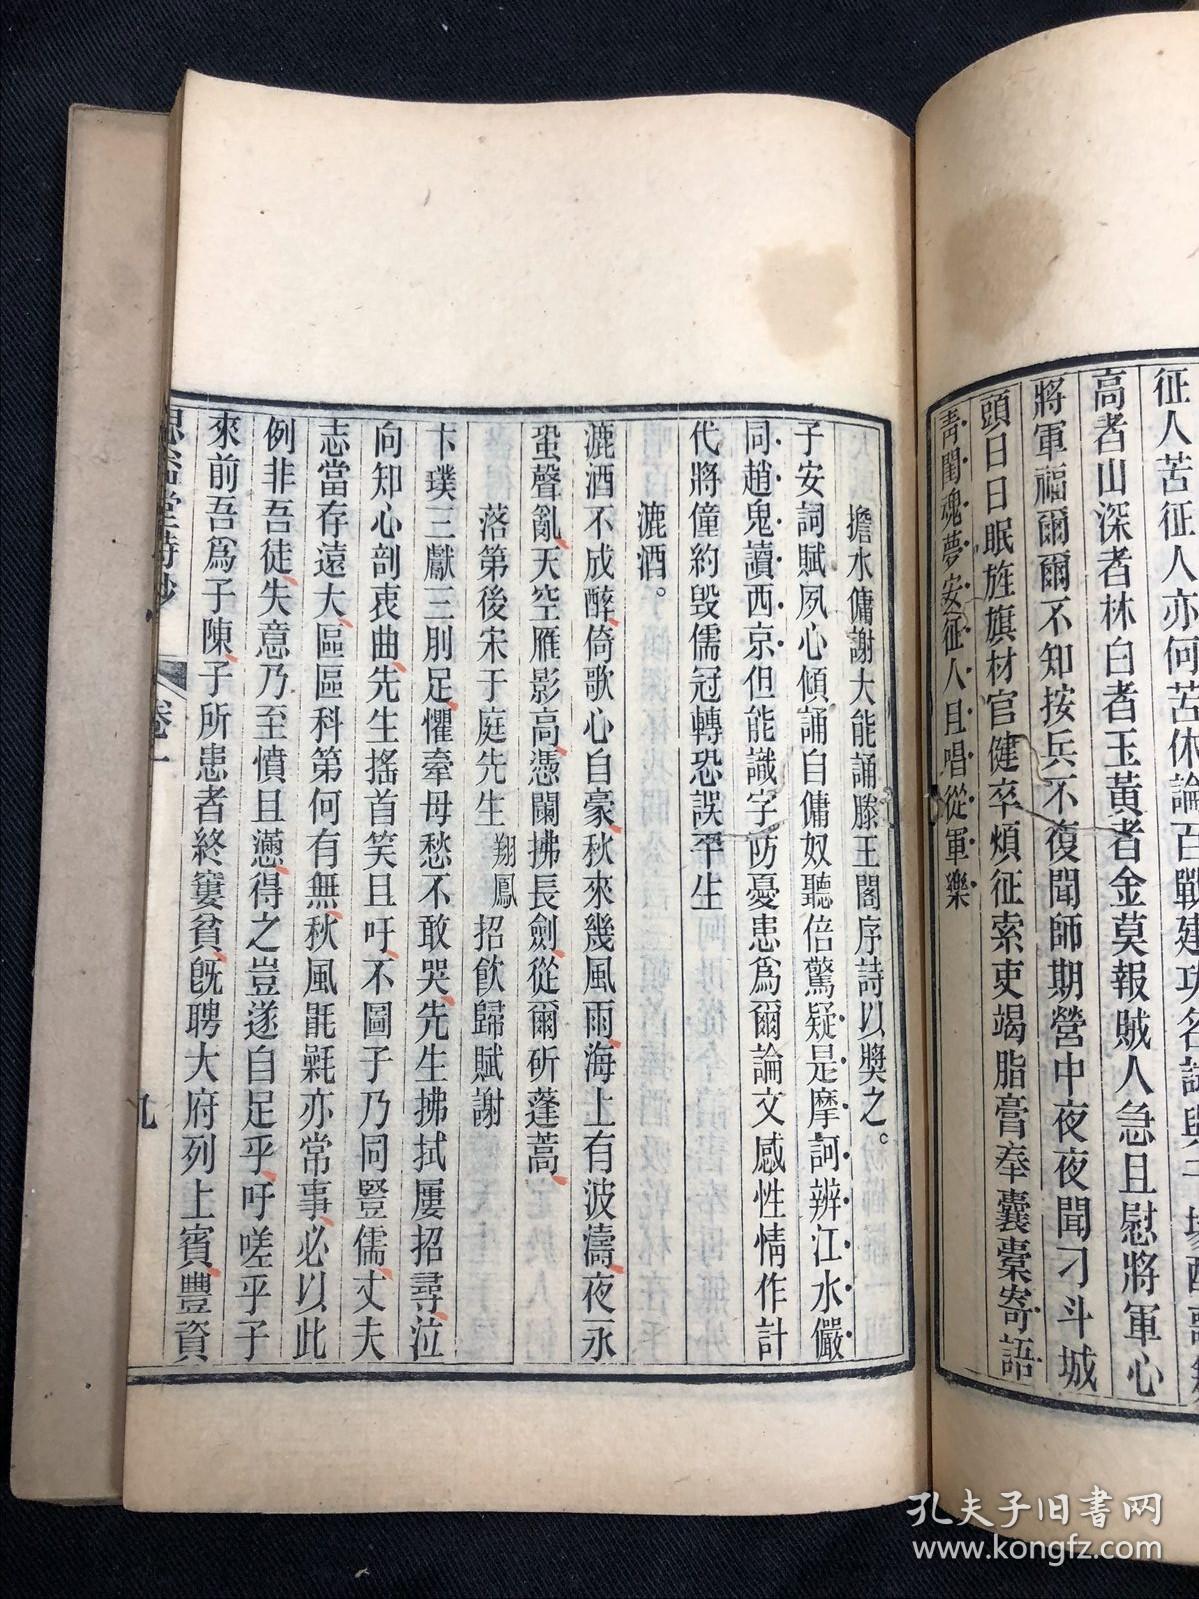 征人苦征人亦何苦休論百戰建功名
高者山深者林白者玉黃者金莫報賊人急且慰將軍心
將軍福爾爾不知按兵不復聞師期營中夜夜聞刁斗城
頭日日眠旌旗材官健卒煩征索吏竭脂膏奉囊橐寄語
青閨魂夢安征人且唱從軍樂
擔水傭謝大能誦滕王閣序詩以獎之。
子安詞賦夙心傾誦自傭奴聽倍驚疑是摩訶辨江水儼
同趙鬼讀西京但能識字防憂患爲爾論文感性情作計
代將僮約毀儒冠轉恐誤平生
漉酒。
漉酒不成醉倚歌心自豪秋來幾風雨海上有波濤夜永
蛩聲亂天空雁影高憑闌拂長劍從爾斫蓬蒿
落第後宋于庭先生翔鳳招飲歸賦謝
卞璞三獻三刖足懼牽母愁不敢哭先生拂拭屢招尋泣
向知心剖衷曲先生搖首笑且吁不圖子乃同豎儒丈夫
志當存遠大區區科第何有無秋風毷氉亦常事必以此
例非吾徒失意乃至憤且懣得之豈遂自足乎吁嗟乎子
來前吾爲子陳子所患者終窶貧既聘大府列上賓豐資
思益堂詩鈔 卷一 九
孔夫子旧书网
www.kongfz.com